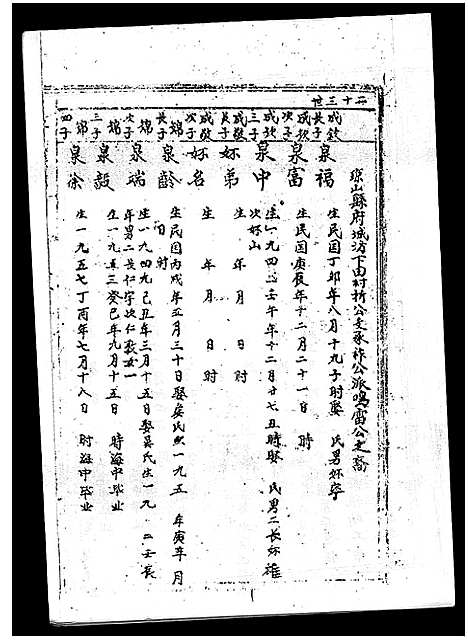 二十三世
琼山縣府城坊下田村祈公支承祚公派鳴雷公之裔
成欽長子 泉福 生民国丁卯年八月十九子时娶 氏男妚寧
成欽次子 泉富 生民国庚辰年十二月二十一日 時
成欽三子 泉中 生一九四二壬午年十二月廿七丑時娶 氏男二長妚雄次妚山
成啟長子 妚弟 生 年 月 日 时
成啟次子 妚名 生 年 月 日 时
錦長子 泉齡 生民国丙戌年五月三十日娶吳氏生一九五 年庚寅年 月 日时
錦次子 泉瑞 生一九四九己丑年三月十五日娶吳氏生一九 二壬辰年男二長仁字次仁 女一
錦三子 泉毅 生一九五三癸巳年九月十五日 時海中毕业
錦四子 泉余 生一九五七丁酉年七月十八日 时海中毕业
1